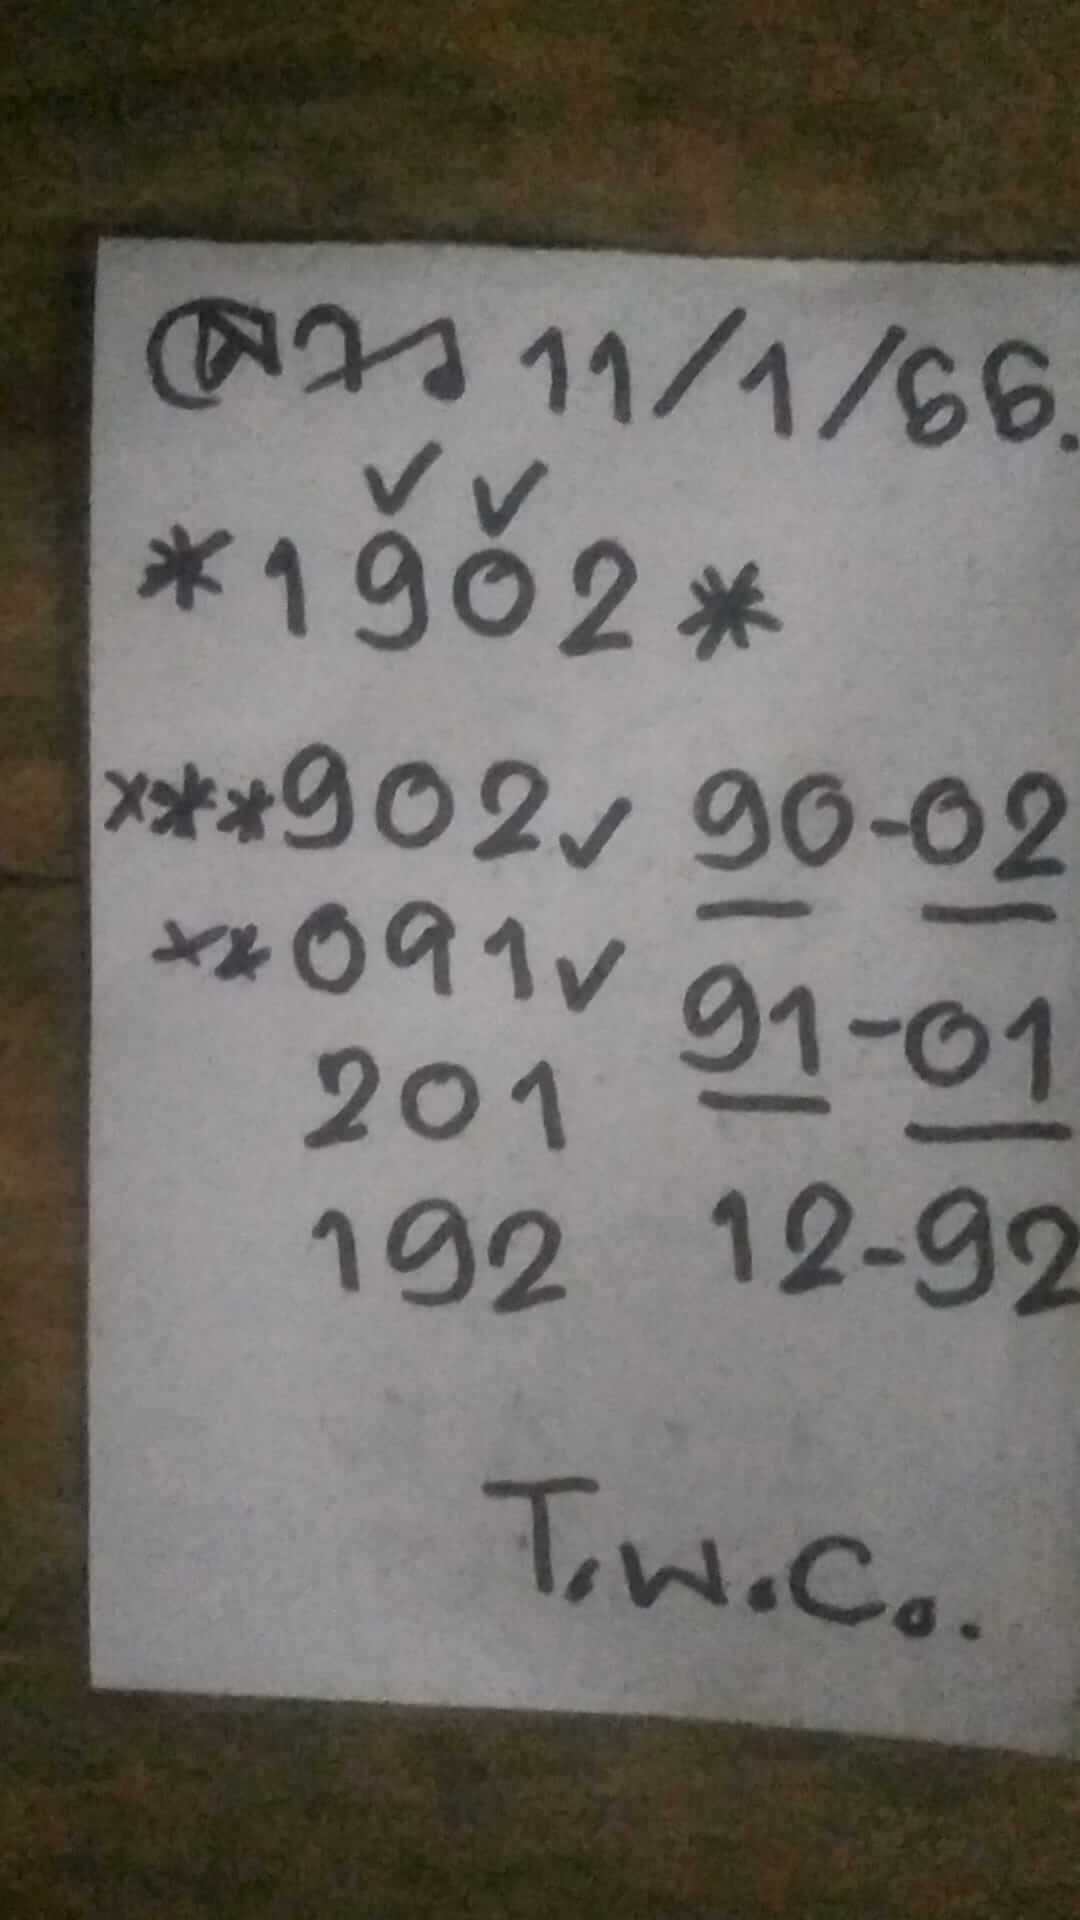 11/1/66.
*1902*
***902✓ 90-02
**091✓ 91-01
201
192 12-92
T.W.C..